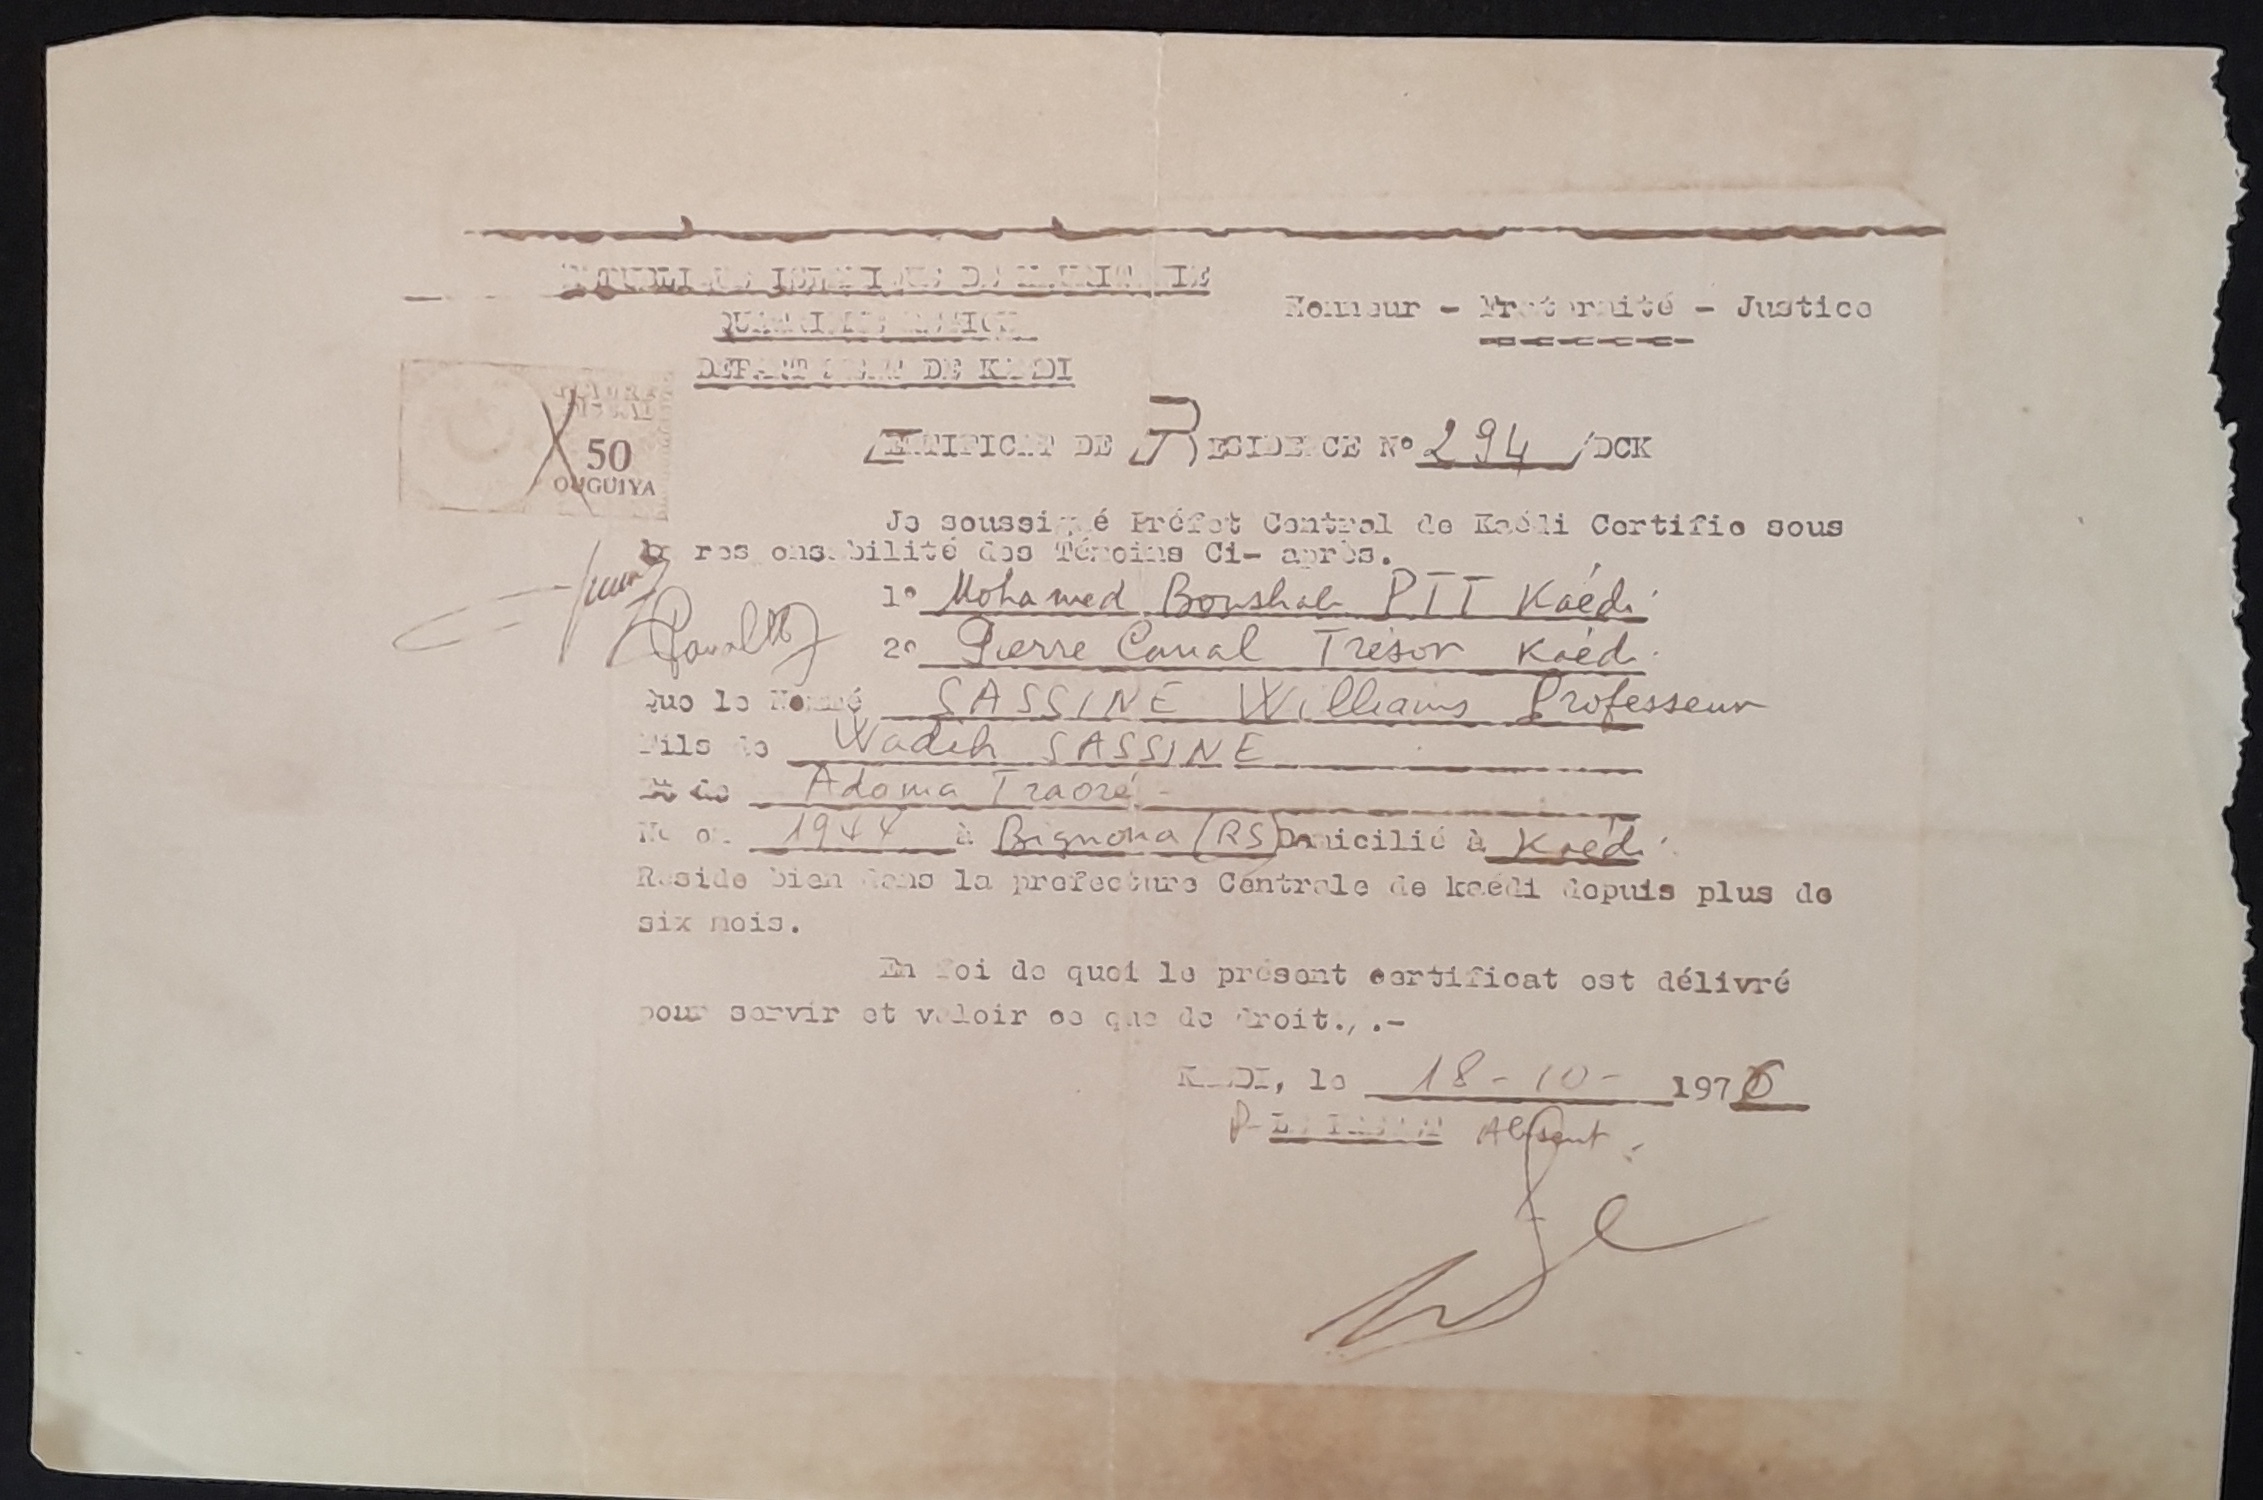 REPUBLIQUE ISLAMIQUE DE MAURITANIE
Honneur - Fraternité - Justice
QUATRIEME REGION
DEPARTEMENT DE KAEDI
TIMBRE
FISCAL
50
OUGUIYA
CERTIFICAT DE RESIDENCE N° 294 /DCK
Je soussigné Préfet Central de Kaédi Certifie sous
la responsabilité des Témoins Ci- après.
1° Mohamed PTT Kaédi
2° Pierre Canal Trésor Kaédi
Que le Nommé SASSINE Williams Professeur
Fils de Wadih SASSINE
Et de Adama Traoré
Né en 1944 à Bignona (RS) Domicilié à Kaédi
Reside bien dans la prefecture Centrale de kaédi depuis plus de
six mois.
En foi de quoi le présent certificat est délivré
pour servir et valoir ce que de droit./.-
KAEDI, le 18-10- 1976
P- LE PREFET Absent